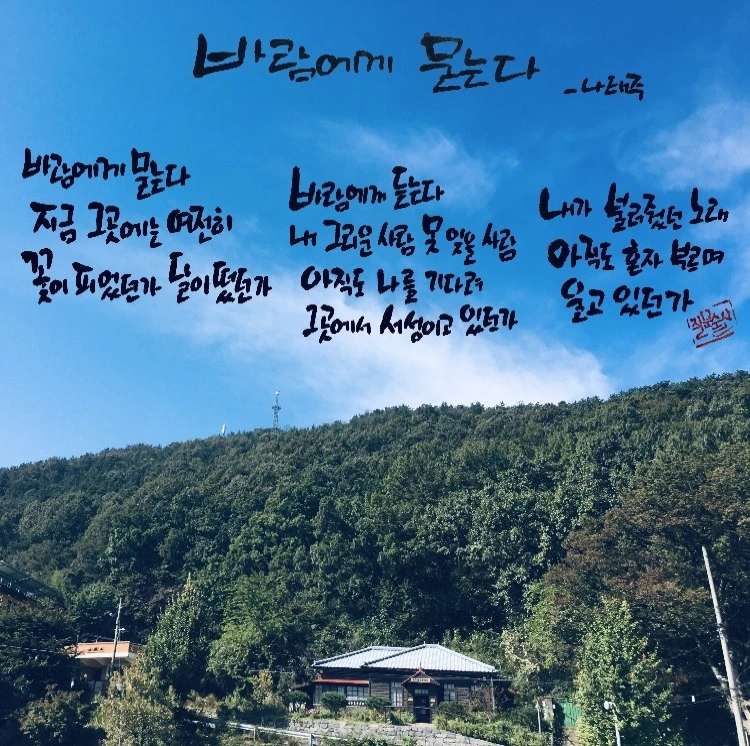 바람에게 묻는다
-나태주
바람에게 묻는다
지금 그곳에는 여전히
꽃이 피었던가 달이 떴던가
바람에게 듣는다
내 그리운 사람 못 잊을 사람
아직도 나를 기다려
그곳에서 서성이고 있던가
내가 불러줬던 노래
아직도 혼자 부르며
울고 있던가